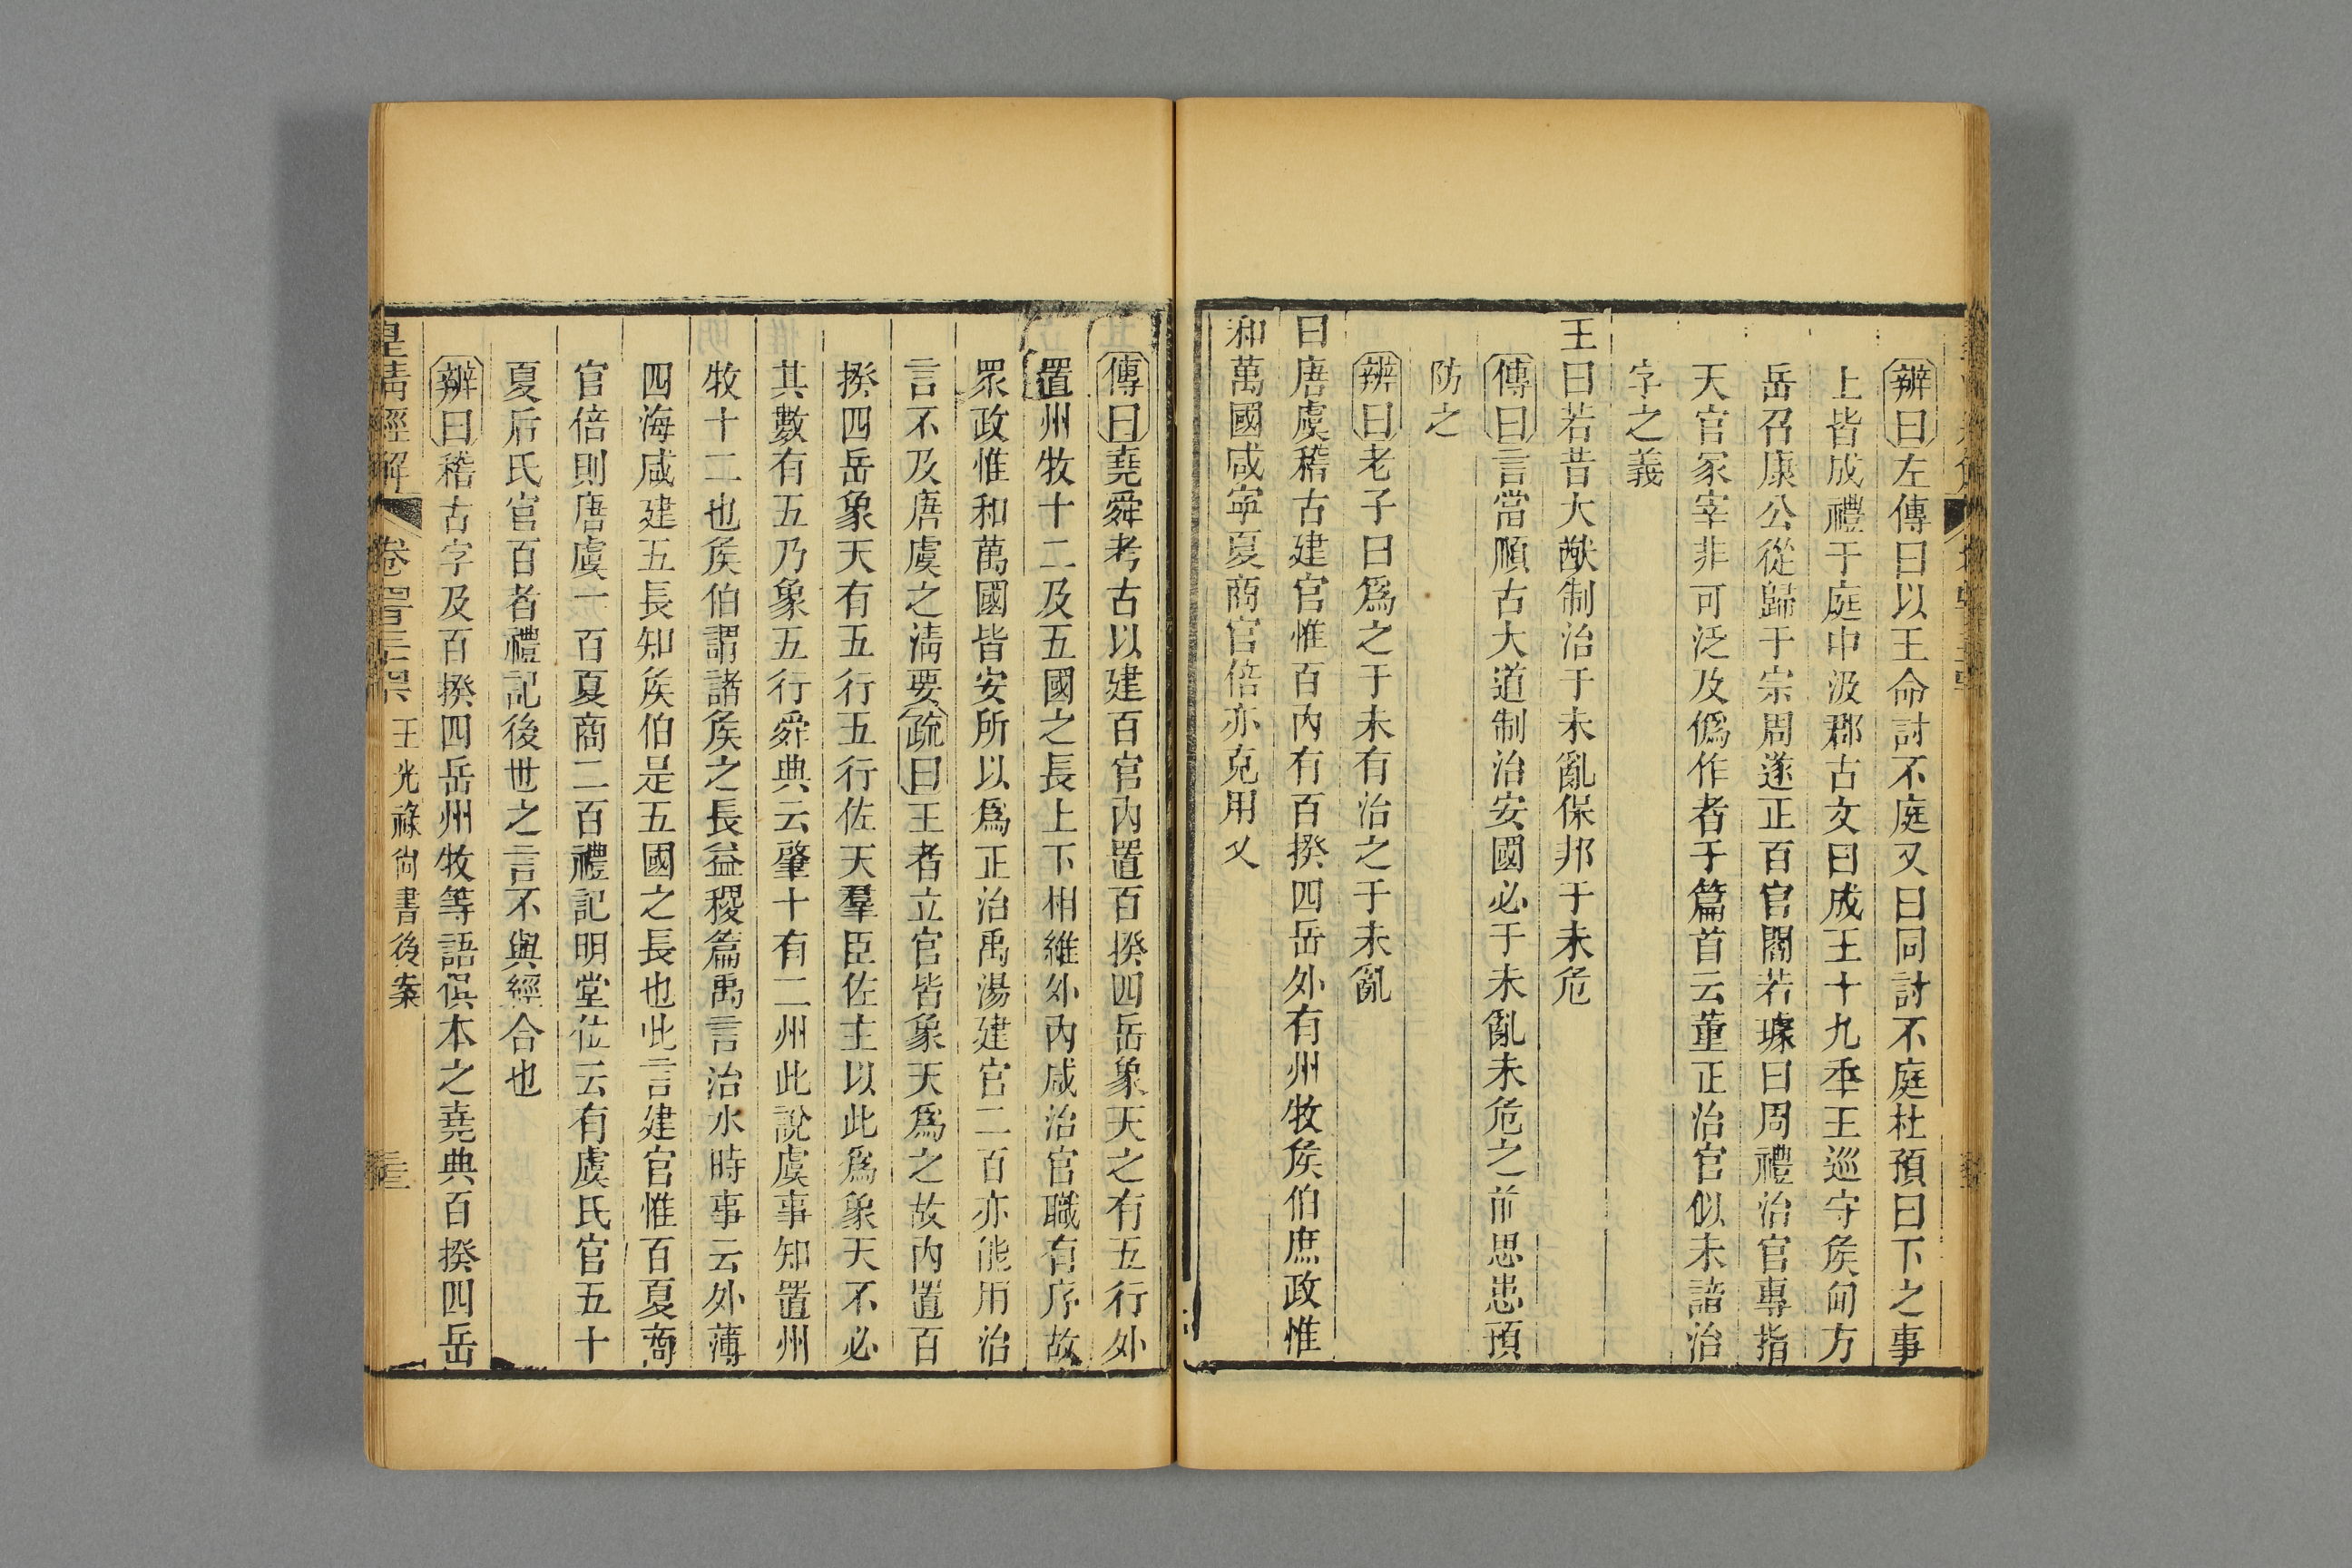 辨曰左傳曰以王命討不庭又曰同討不庭杜預曰下之事
上皆成禮于庭中汲郡古文曰成王十九秊王巡守矦甸方
岳召康公從歸于宗周遂正百官閻若璩曰周禮治官專指
天官冢宰非可泛及僞作者于篇首云董正治官似未諳治
字之義
王曰若昔大猷制治于未亂保邦于未危
傳曰言當順古大道制治安國必于未亂未危之前思患預
防之
辨曰老子曰爲之于未有治之于未亂
曰唐虞稽古建官惟百內有百揆四岳外有州牧矦伯庶政惟
和萬國咸寧夏商官倍亦克用乂
傳曰堯舜考古以建百官內置百揆四岳象天之有五行外
置州牧十二及五國之長上下相維外內咸治官職有序故
眾政惟和萬國皆安所以爲正治禹湯建官二百亦能用治
言不及唐虞之淸要疏曰王者立官皆象天爲之故內置百
揆四岳象天有五行五行佐天羣臣佐主以此爲象天不必
其數有五乃象五行舜典云肇十有二州此說虞事知置州
牧十二也矦伯謂諸矦之長益稷篇禹言治水時事云外薄
四海咸建五長知矦伯是五國之長也此言建官惟百夏商
官倍則唐虞一百夏商二百禮記明堂位云有虞氏官五十
夏后氏官百者禮記後世之言不與經合也
辨曰稽古字及百揆四岳州牧等語俱本之堯典百揆四岳
皇淸經解 卷 王光祿尙書後案